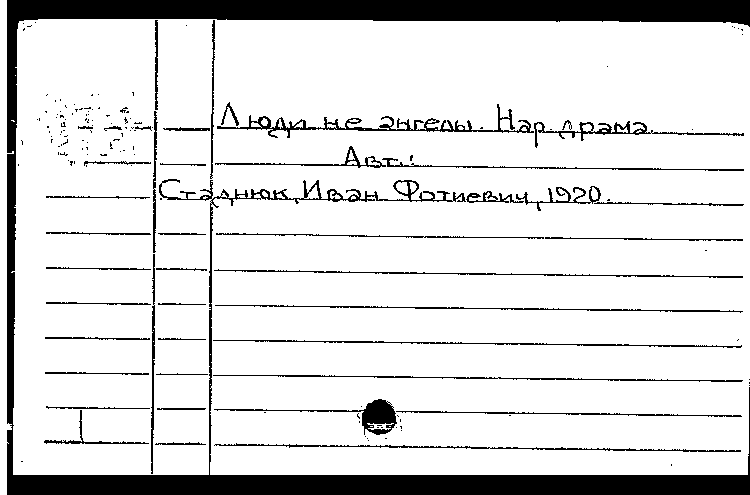 Люди не ангелы. Нар драма.
Авт.:
Стаднюк, Иван Фотиевич, 1920.